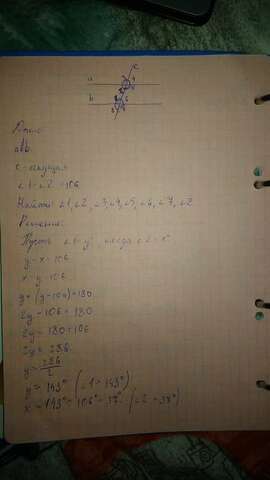 c
a
b
Дано:
a||b
c - секущая
∠1-∠2 = 106
Найти: ∠1, ∠2, ∠3, ∠4, ∠5, ∠6, ∠7, ∠8
Решение:
Пусть ∠1 = y°, тогда ∠2 = x°
y - x = 106
x = y - 106
y + (y - 106) = 180
2y - 106 = 180
2y = 180 + 106
2y = 286
y = 286/2
y = 143° (∠1 = 143°)
x = 143° - 106° = 37° (∠2 = 37°)